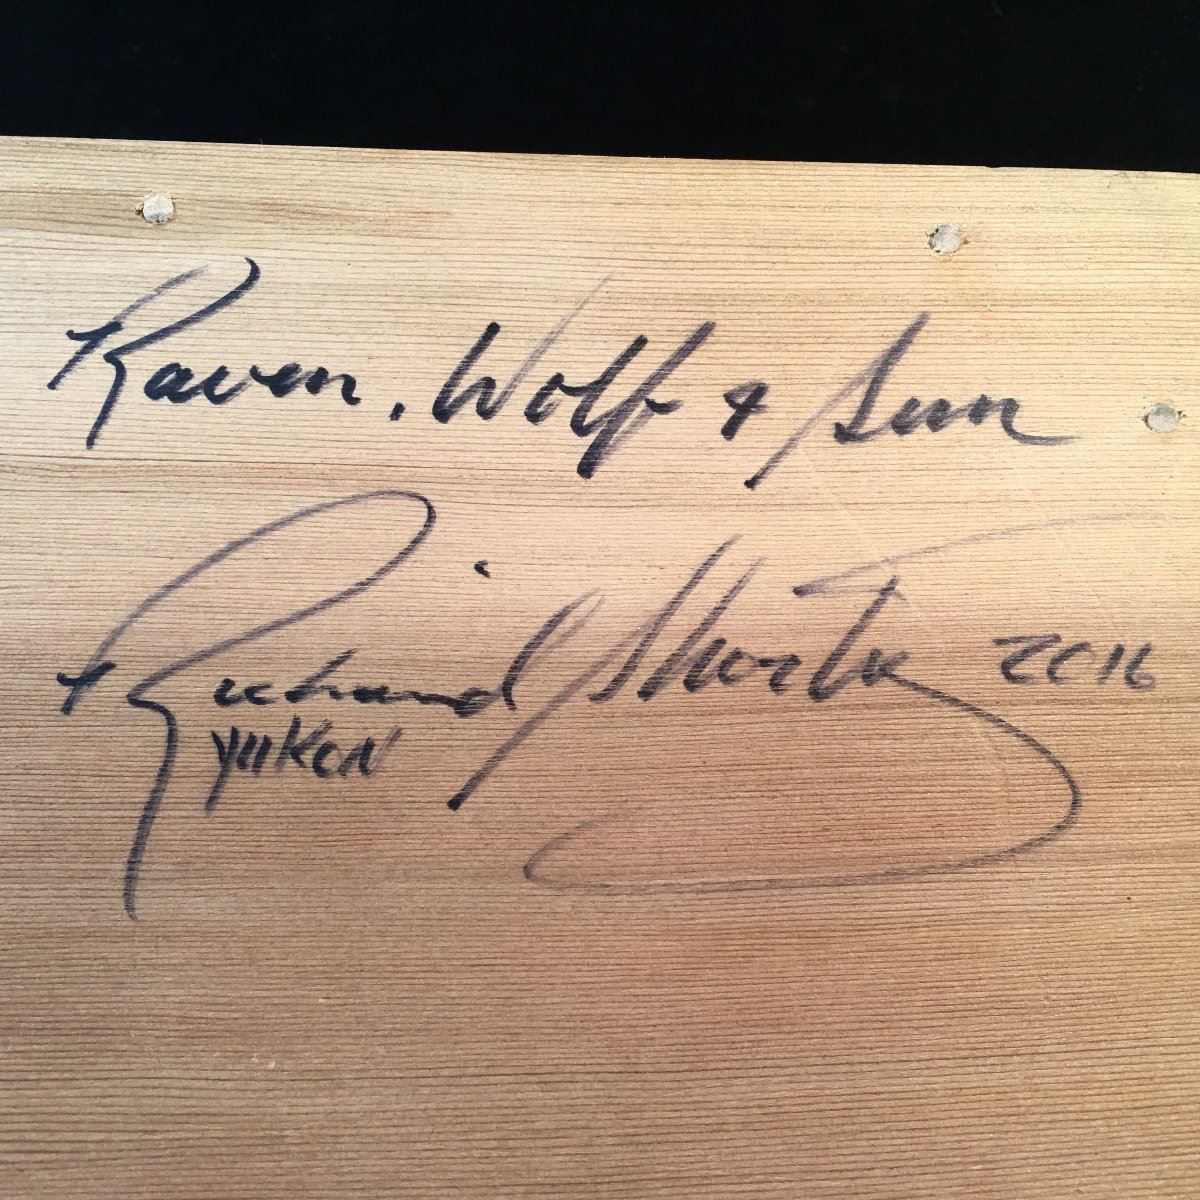 Raven, Wolf & Sun
Richard Shorty 2016
YUKON